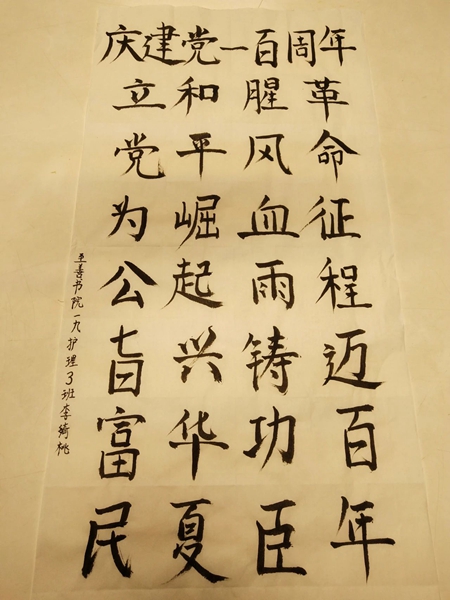 庆建党一百周年
革命征程迈百年
腥风血雨铸功臣
和平崛起兴华夏
立党为公旨富民
至善书院一九护理3班李绮桃